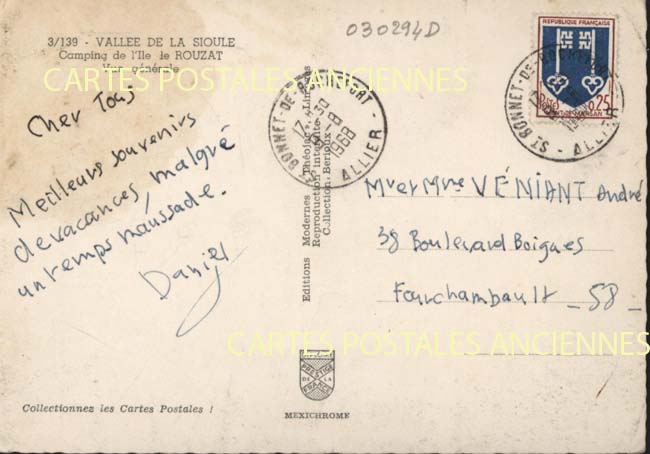 030294D
3/139 - VALLEE DE LA SIOULE
Camping de l'Ile de ROUZAT
Vue générale
CARTES POSTALES ANCIENNES
Cher Tous
Meilleurs souvenirs
de vacances, malgré
un temps maussade.
Daniel
Editions Modernes "Théojac", Limoges
Reproduction interdite
Collection Berioux
REPUBLIQUE FRANÇAISE
0,25
MONT-DE-MARSAN
ST BONNET-DE-ROCHEFORT - ALLIER
17 H 30
8-8
1968
ST BONNET-DE-ROCHEFORT - ALLIER
Mr et Mme VÉNIANT André
38 Boulevard Boigues
Fourchambault - 58 -
CARTES POSTALES ANCIENNES
PRESTIGE
DE LA
FRANCE
MEXICHROME
Collectionnez les Cartes Postales !